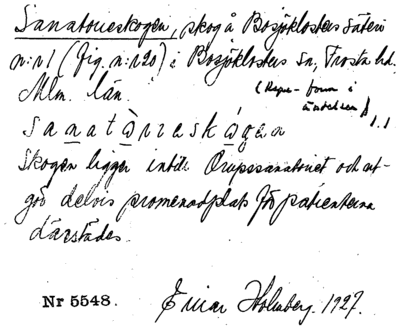 Sanatorieskogen, skog å Bosjöklosters säteri
n:r 1 (fig. n:r 20) i Bosjöklosters sn, Frosta hd.
Mlm. län.
i
s a n a t à r ɪ e s k ó g e n
Skogen ligger intill Orupssanatoriet och ut-
gör delvis promenadplats för patienterna
därstädes.
Nr 5548. Einar Holmberg. 1927.